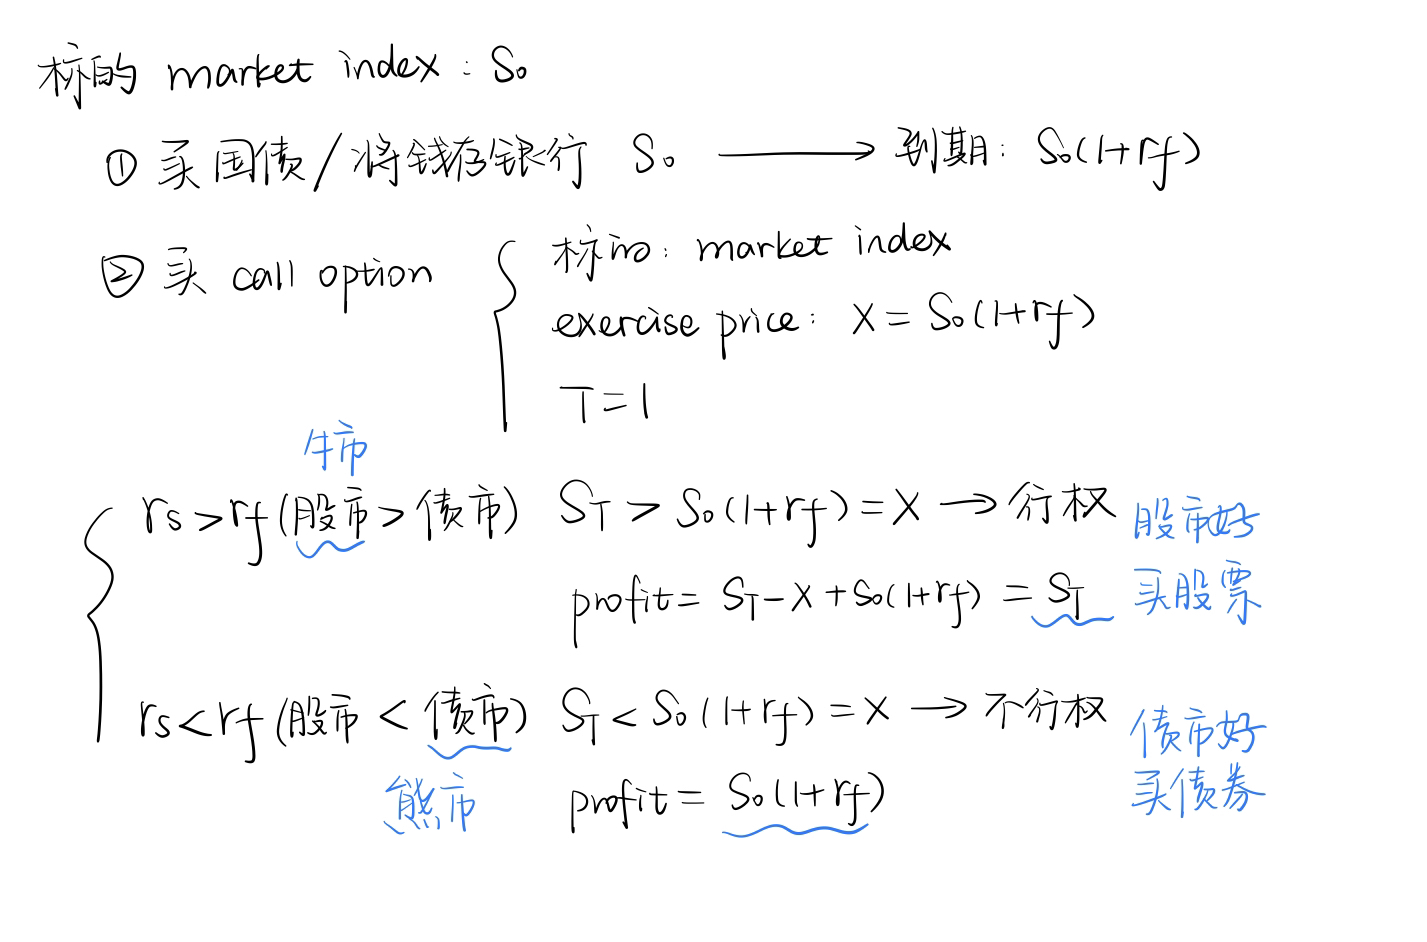 标的 market index : S₀
① 买国债/将钱存银行 S₀ ⟶ 到期: S₀(1+rf)
② 买 call option
标的: market index
exercise price: X = S₀(1+rf)
T = 1
牛市
rs > rf (股市 > 债市) S_T > S₀(1+rf) = X → 行权 股市好
profit = S_T - X + S₀(1+rf) = S_T 买股票
rs < rf (股市 < 债市) S_T < S₀(1+rf) = X → 不行权 债市好
熊市 profit = S₀(1+rf) 买债券